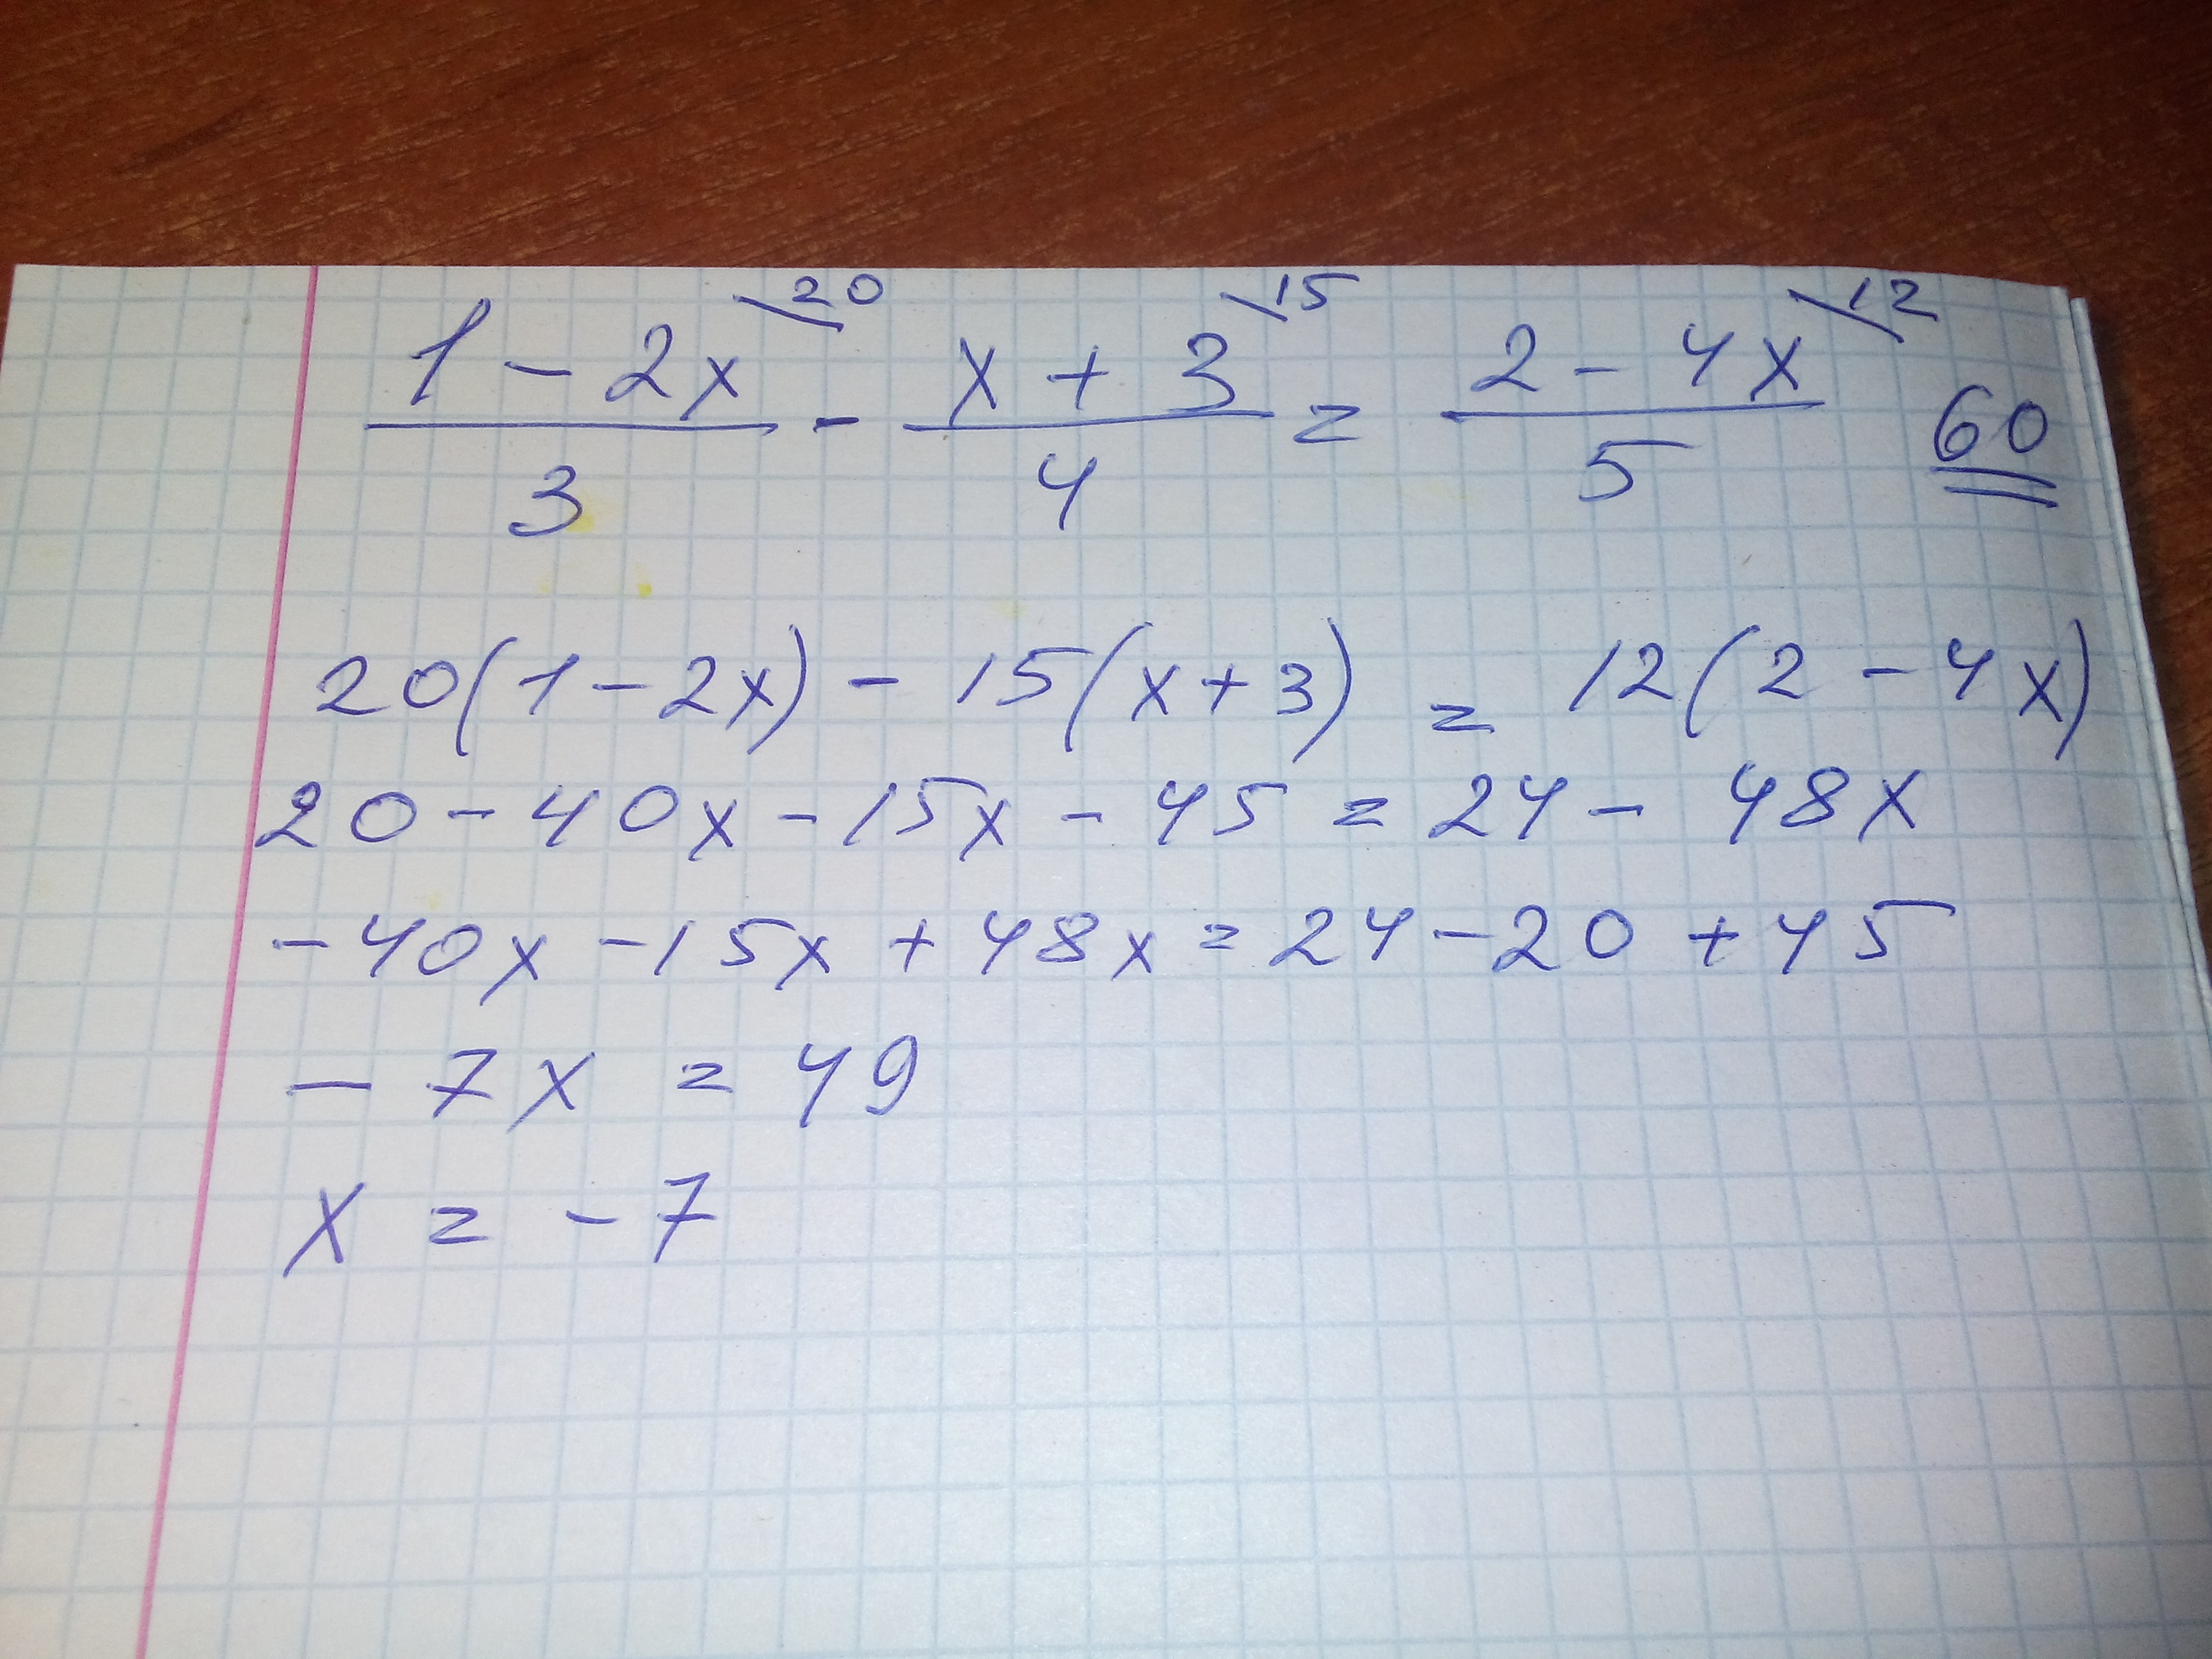 1 - 2x \20 x + 3 \15 2 - 4x \12
— - — = — 60
3 4 5
20(1 - 2x) - 15(x + 3) = 12(2 - 4x)
20 - 40x - 15x - 45 = 24 - 48x
- 40x - 15x + 48x = 24 - 20 + 45
- 7x = 49
x = - 7